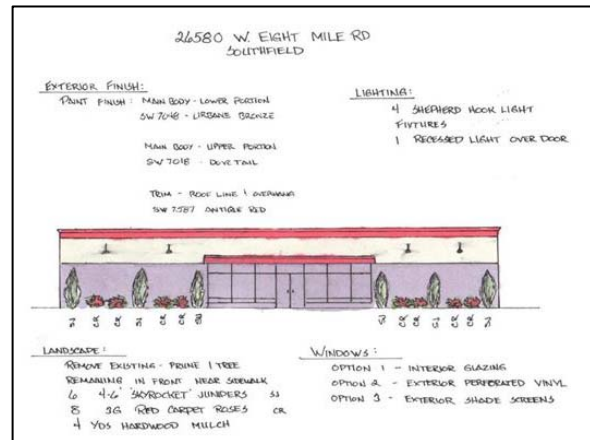 26580 W. EIGHT MILE RD
SOUTHFIELD
EXTERIOR FINISH:
PAINT FINISH: MAIN BODY - LOWER PORTION
SW 7048 - URBANE BRONZE
MAIN BODY - UPPER PORTION
SW 7018 - DOVETAIL
TRIM - ROOF LINE & OVERHANG
SW 7587 ANTIQUE RED
LIGHTING:
4 SHEPHERD HOOK LIGHT
FIXTURES
1 RECESSED LIGHT OVER DOOR
SJ CR CR SJ CR CR SJ SJ CR CR SJ CR CR SJ
LANDSCAPE:
REMOVE EXISTING - PRUNE 1 TREE
REMAINING IN FRONT NEAR SIDEWALK
6 4-6' 'SKYROCKET' JUNIPERS SJ
8 3G RED CARPET ROSES CR
4 YDS HARDWOOD MULCH
WINDOWS:
OPTION 1 - INTERIOR GLAZING
OPTION 2 - EXTERIOR PERFORATED VINYL
OPTION 3 - EXTERIOR SHADE SCREENS